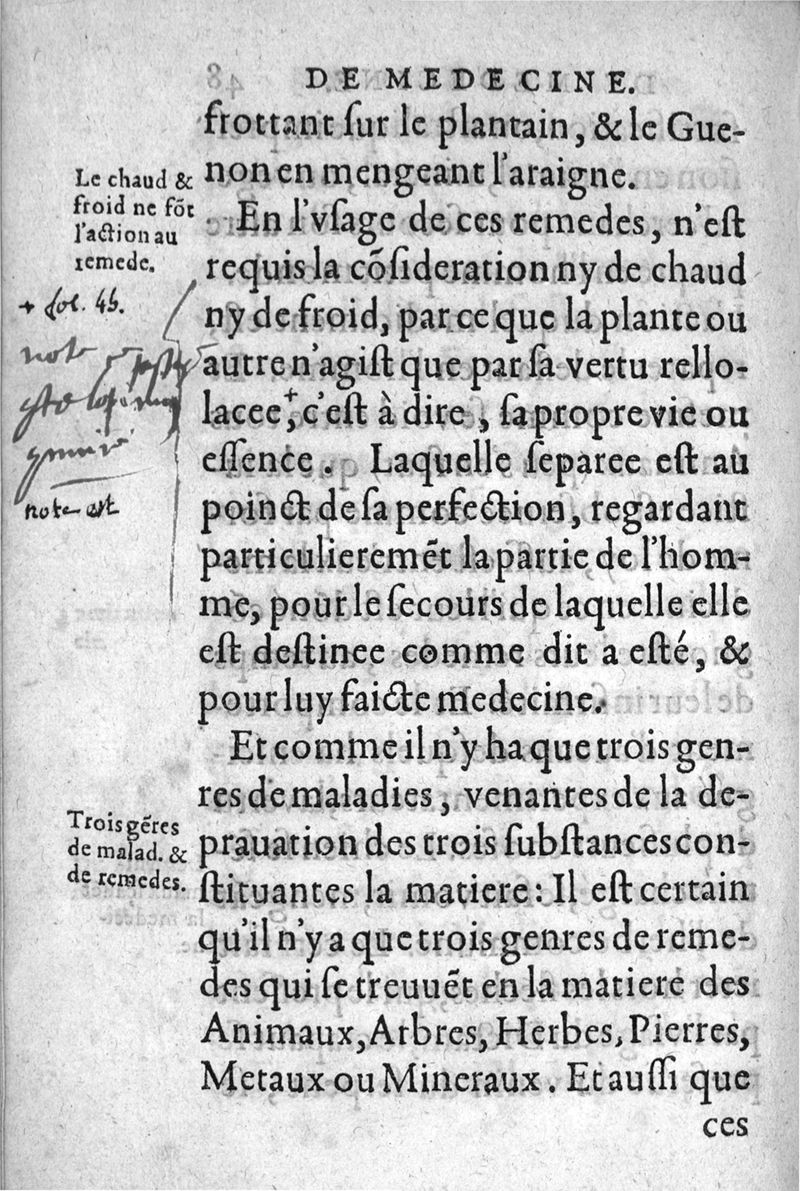 DE MEDECINE.
frottant ſur le plantain, & le Gue-
non en mengeant l'araigne.
Le chaud &
froid ne fõt
l'action au
remede.
En l'vſage de ces remedes, n'eſt
requis la cõſideration ny de chaud
ny de froid, par ce que la plante ou
autre n'agiſt que par ſa vertu rello-
lacee,⁺ c'eſt à dire, ſa propre vie ou
eſſence. Laquelle ſeparee eſt au
poinct de ſa perfection, regardant
particulieremẽt la partie de l'hom-
me, pour le ſecours de laquelle elle
eſt deſtinee comme dit a eſté, &
pour luy faicte medecine.
+ fol. 46.
note
note est
Et comme il n'y ha que trois gen-
res de maladies, venantes de la de-
prauation des trois ſubſtances con-
ſtituantes la matiere: Il eſt certain
qu'il n'y a que trois genres de reme-
des qui ſe treuuẽt en la matiere des
Animaux, Arbres, Herbes, Pierres,
Metaux ou Mineraux. Et auſſi que
Trois gẽres
de malad. &
de remedes.
ces